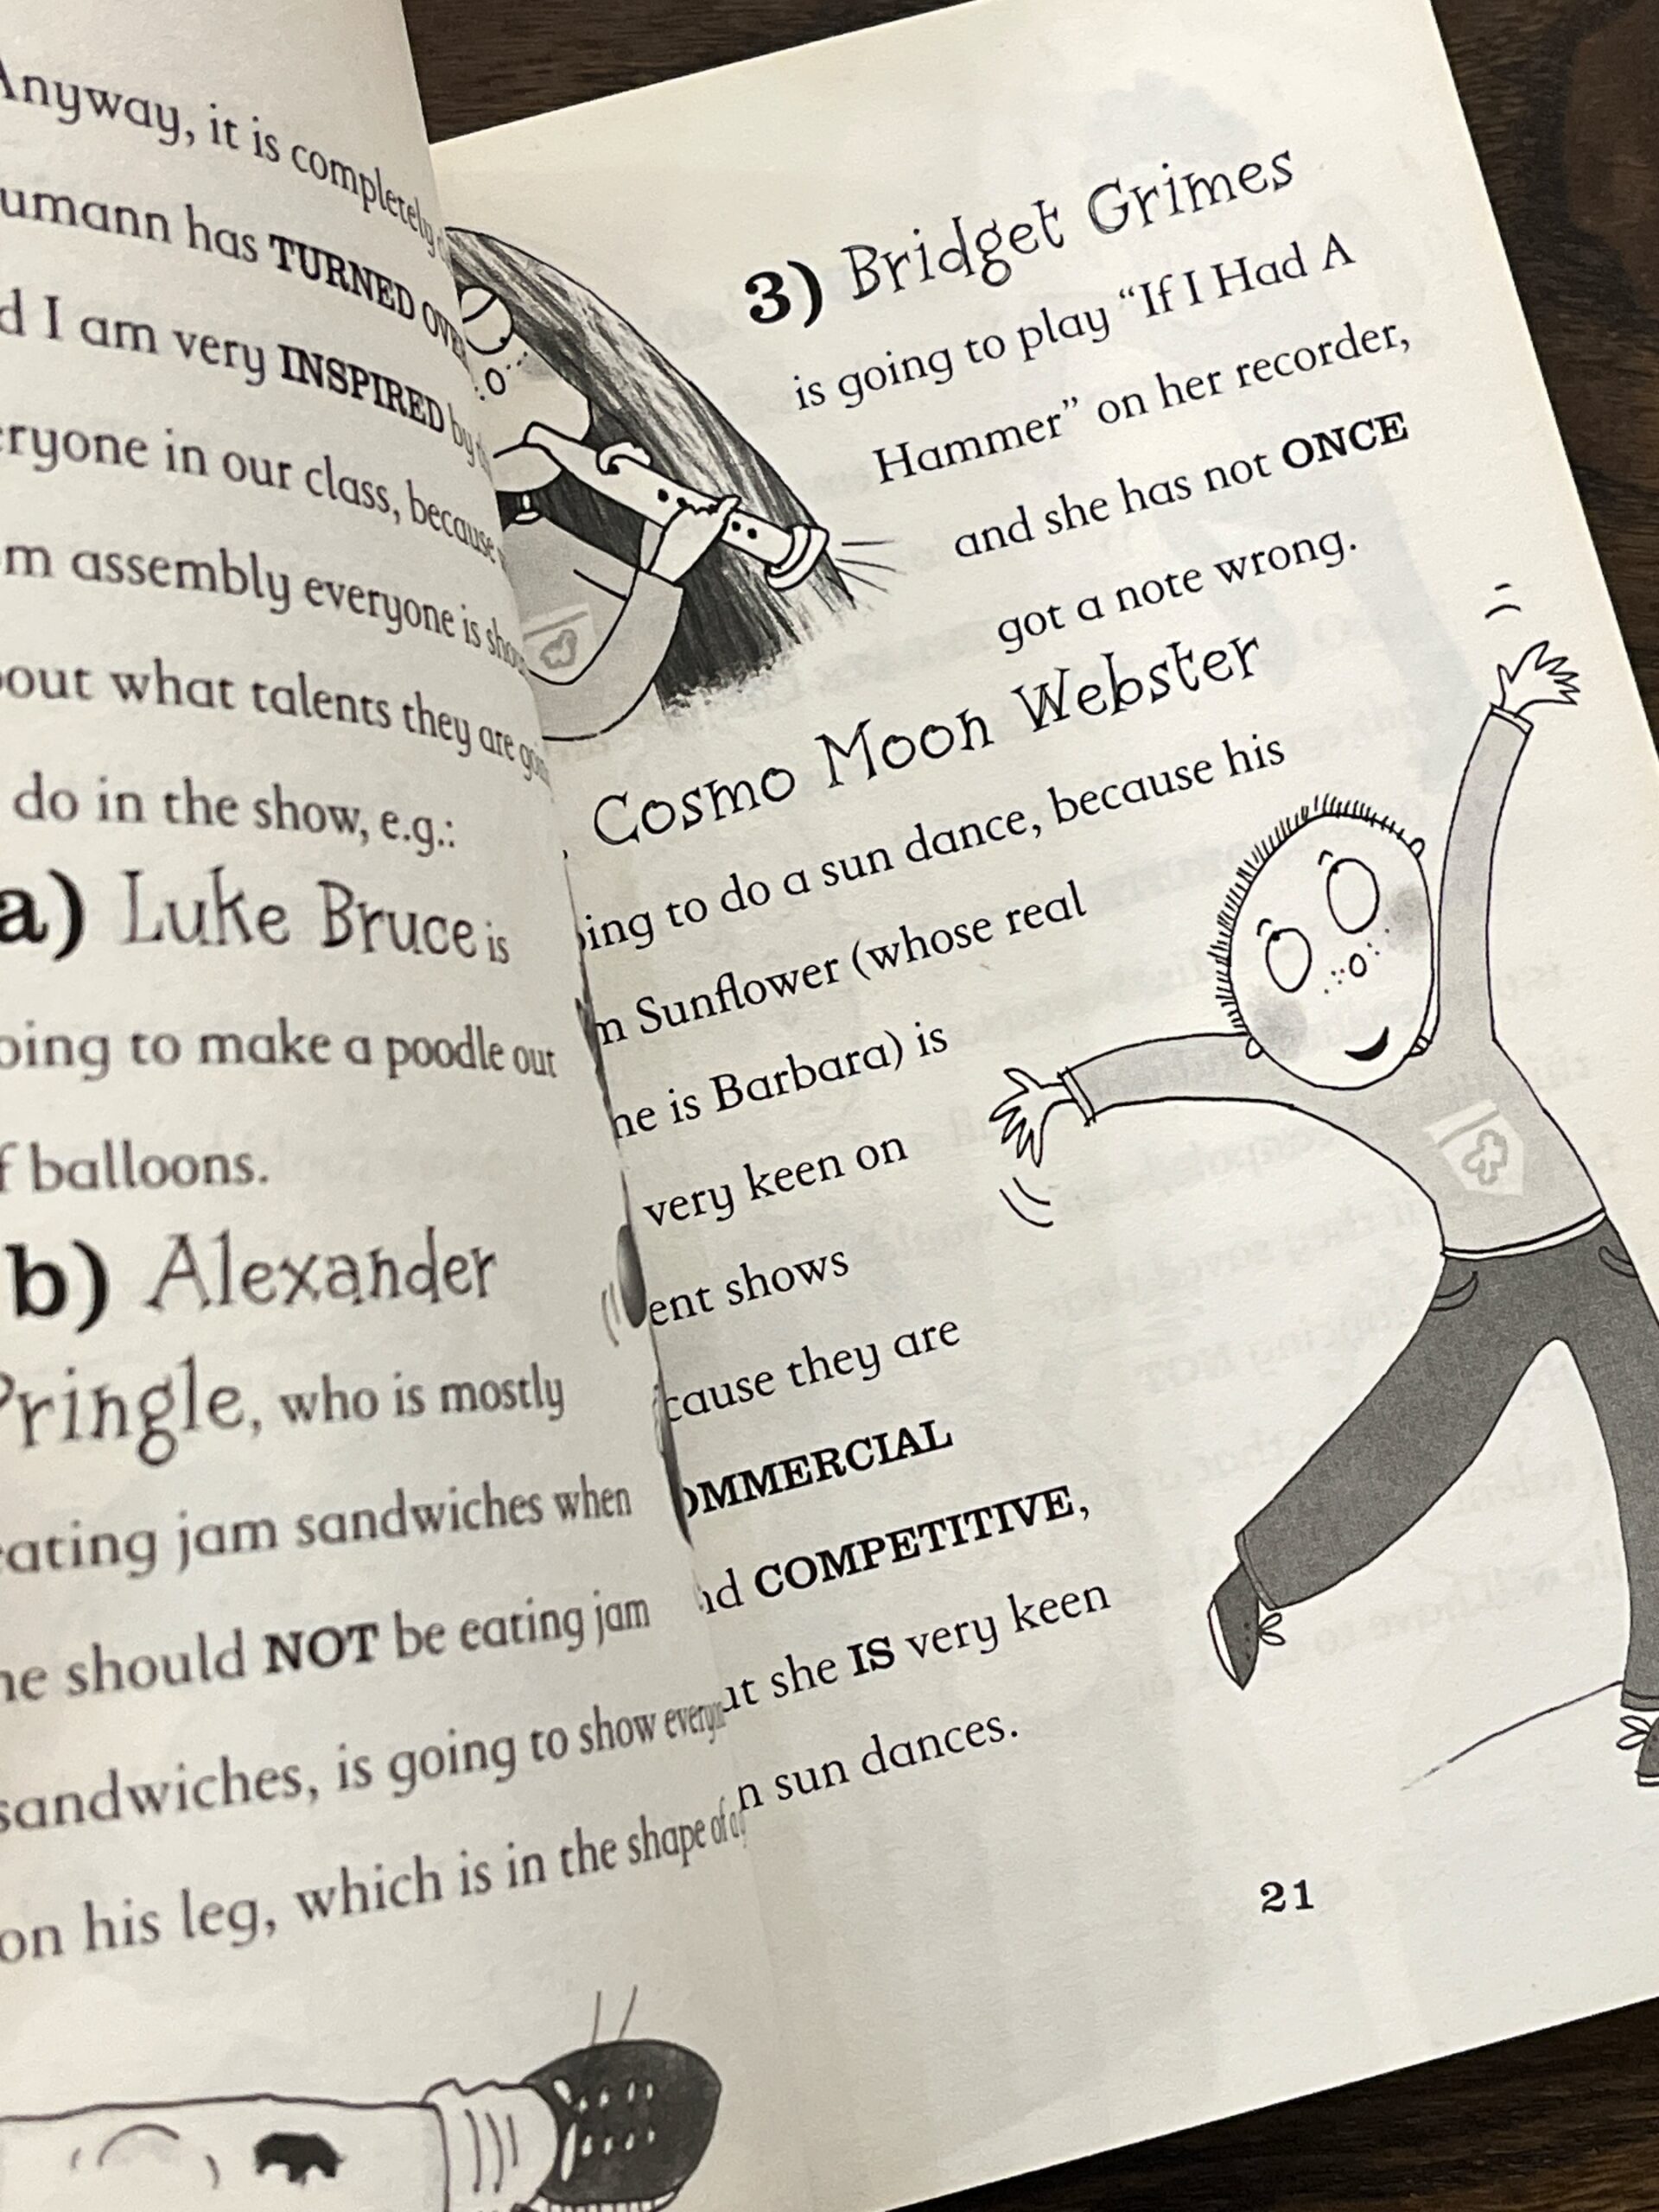 Anyway, it is completely
umann has TURNED OVER
d I am very INSPIRED by
eryone in our class, because
m assembly everyone is
out what talents they are
do in the show, e.g.:
a) Luke Bruce is
oing to make a poodle out
f balloons.
b) Alexander
Pringle, who is mostly
eating jam sandwiches when
he should NOT be eating jam
sandwiches, is going to show
on his leg, which is in the shape of a
3) Bridget Grimes
is going to play “If I Had A
Hammer” on her recorder,
and she has not ONCE
got a note wrong.
Cosmo Moon Webster
oing to do a sun dance, because his
m Sunflower (whose real
me is Barbara) is
very keen on
ent shows
cause they are
OMMERCIAL
nd COMPETITIVE,
ut she IS very keen
n sun dances.
21